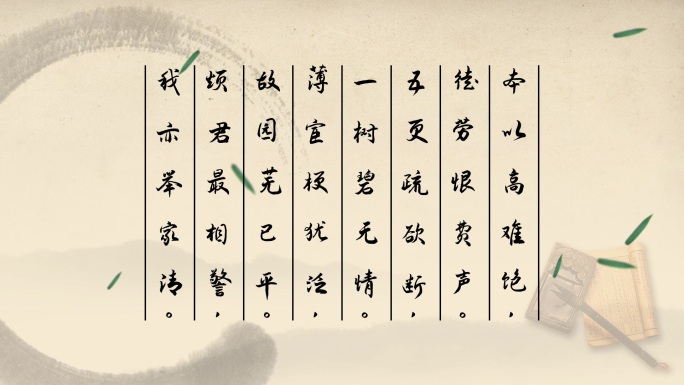 本以高难饱，
徒劳恨费声。
五更疏欲断，
一树碧无情。
薄宦梗犹泛，
故园芜已平。
烦君最相警，
我亦举家清。